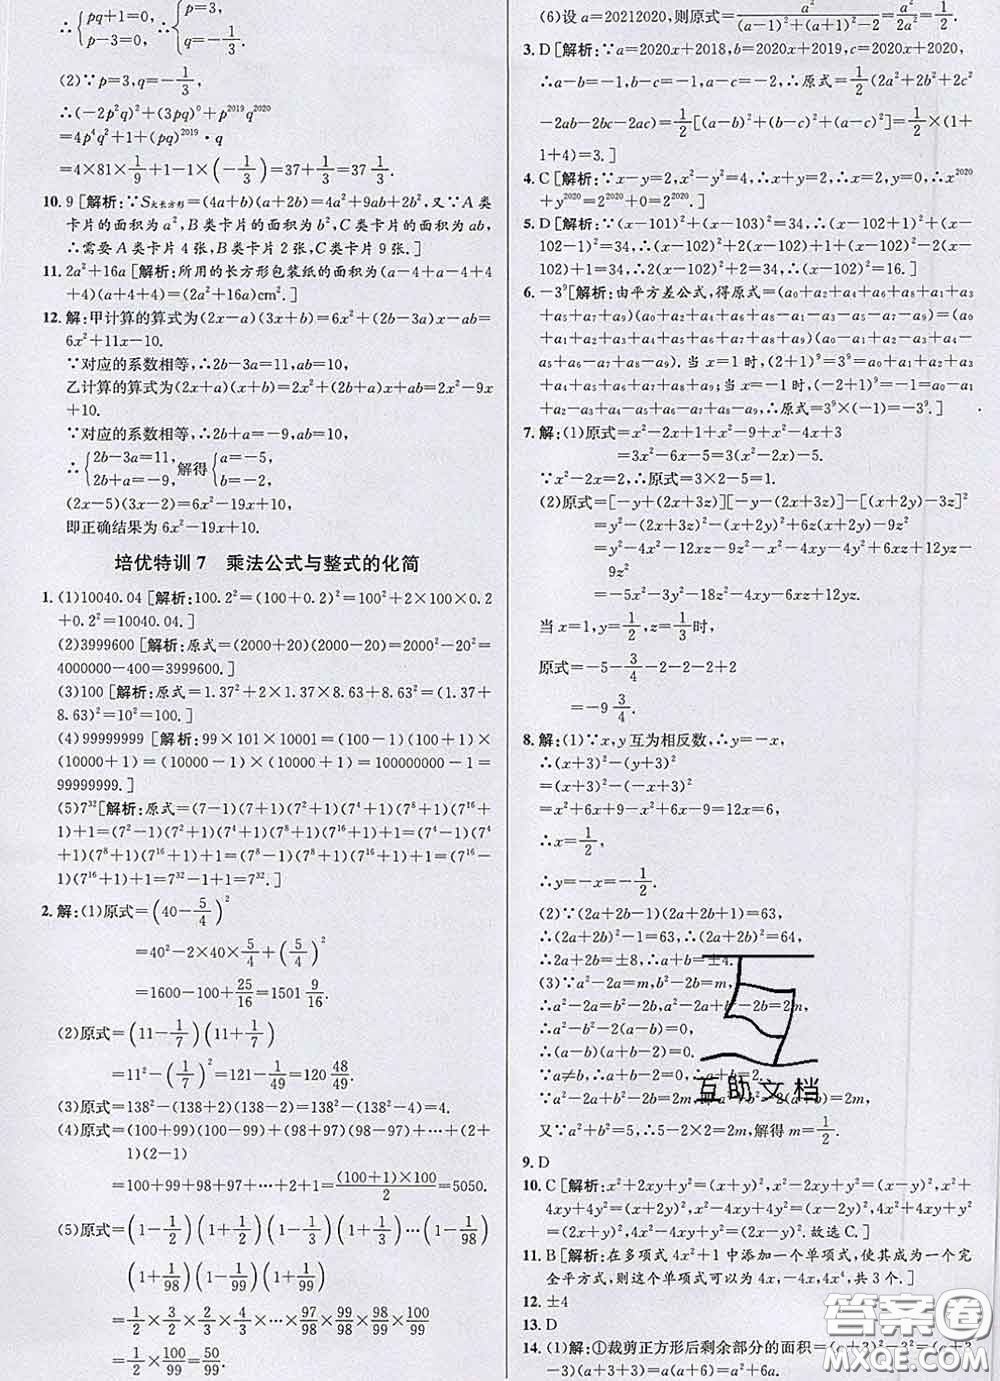 ∴{pq+1=0, p-3=0, ∴{p=3, q=-1/3.
(2)∵p=3,q=-1/3,
∴(-2p²q)²+(3pq)⁰+p²⁰¹⁹q²⁰²⁰
=4p⁴q²+1+(pq)²⁰¹⁹·q
=4×81×1/9+1-1×(-1/3)=37+1/3=37 1/3.
10. 9 [解析:∵S大长方形=(4a+b)(a+2b)=4a²+9ab+2b²,又∵A 类
卡片的面积为 a²,B 类卡片的面积为 b²,C 类卡片的面积为 ab,
∴需要 A 类卡片 4 张,B 类卡片 2 张,C 类卡片 9 张.]
11. 2a²+16a [解析:所用的长方形包装纸的面积为(a-4+a-4+4
+4)(a+4+4)=(2a²+16a)cm².]
12. 解:甲计算的算式为(2x-a)(3x+b)=6x²+(2b-3a)x-ab=
6x²+11x-10.
∵对应的系数相等,∴2b-3a=11,ab=10,
乙计算的算式为(2x+a)(x+b)=2x²+(2b+a)x+ab=2x²-9x
+10.
∵对应的系数相等,∴2b+a=-9,ab=10,
∴{2b-3a=11, 2b+a=-9, 解得{a=-5, b=-2,
(2x-5)(3x-2)=6x²-19x+10,
即正确结果为 6x²-19x+10.
培优特训 7 乘法公式与整式的化简
1. (1)10040.04 [解析:100.2²=(100+0.2)²=100²+2×100×0.2
+0.2²=10040.04.]
(2)3999600 [解析:原式=(2000+20)(2000-20)=2000²-20²=
4000000-400=3999600.]
(3)100 [解析:原式=1.37²+2×1.37×8.63+8.63²=(1.37+
8.63)²=10²=100.]
(4)99999999 [解析:99×101×10001=(100-1)(100+1)×
(10000+1)=(10000-1)×(10000+1)=100000000-1=
99999999.]
(5)7³² [解析:原式=(7-1)(7+1)(7²+1)(7⁴+1)(7⁸+1)(7¹⁶
+1)+1=(7²-1)(7²+1)(7⁴+1)(7⁸+1)(7¹⁶+1)+1=(7⁴-1)(7⁴
+1)(7⁸+1)(7¹⁶+1)+1=(7⁸-1)(7⁸+1)(7¹⁶+1)+1=(7¹⁶-1)
(7¹⁶+1)+1=7³²-1+1=7³².]
2. 解:(1)原式=(40-5/4)²
=40²-2×40×5/4+(5/4)²
=1600-100+25/16=1501 9/16.
(2)原式=(11-1/7)(11+1/7)
=11²-(1/7)²=121-1/49=120 48/49.
(3)原式=138²-(138+2)(138-2)=138²-(138²-4)=4.
(4)原式=(100+99)(100-99)+(98+97)(98-97)+…+(2+
1)(2-1)
=100+99+98+97+…+2+1=(100+1)×100/2=5050.
(5)原式=(1-1/2)(1+1/2)(1-1/3)(1+1/3)(1-1/4)…(1-1/98)
(1+1/98)(1-1/99)(1+1/99)
=1/2×3/2×2/3×4/3×3/4×…×97/98×99/98×98/99×100/99
=1/2×100/99=50/99.
(6)设 a=20212020,则原式=a²/((a-1)²+(a+1)²-2)=a²/2a²=1/2.
3. D [解析:∵a=2020x+2018,b=2020x+2019,c=2020x+2020,
∴a-b=-1,b-c=-1,a-c=-2,∴原式=1/2(2a²+2b²+2c²
-2ab-2bc-2ac)=1/2[(a-b)²+(b-c)²+(a-c)²]=1/2×(1+
1+4)=3.]
4. C [解析:∵x-y=2,x²-y²=4,∴x+y=2,∴x=2,y=0,∴x²⁰²⁰
+y²⁰²⁰=2²⁰²⁰+0=2²⁰²⁰.]
5. D [解析:∵(x-101)²+(x-103)²=34,∴(x-102+1)²+(x-
102-1)²=34,∴(x-102)²+2(x-102)+1+(x-102)²-2(x-
102)+1=34,∴2(x-102)²+2=34,∴(x-102)²=16.]
6. -3⁹ [解析:由平方差公式,得原式=(a₀+a₂+a₄+a₆+a₈+a₁+a₃
+a₅+a₇+a₉)(a₀+a₂+a₄+a₆+a₈-a₁-a₃-a₅-a₇-a₉)=(a₀
+a₁+a₂+a₃+a₄+a₅+a₆+a₇+a₈+a₉)(a₀-a₁+a₂-a₃+a₄
-a₅+a₆-a₇+a₈-a₉).当 x=1 时,(2+1)⁹=3⁹=a₀+a₁+a₂+a₃
+a₄+a₅+a₆+a₇+a₈+a₉;当 x=-1 时,(-2+1)⁹=-1=a₀-a₁
+a₂-a₃+a₄-a₅+a₆-a₇+a₈-a₉,∴原式=3⁹×(-1)=-3⁹.]
7. 解:(1)原式=x²-2x+1+x²-9+x²-4x+3
=3x²-6x-5=3(x²-2x)-5.
∵x²-2x=2,∴原式=3×2-5=1.
(2)原式=[-y+(2x+3z)][-y-(2x+3z)]-[(x+2y)-3z]²
=y²-(2x+3z)²-(x+2y)²+6z(x+2y)-9z²
=y²-4x²-12xz-9z²-x²-4xy-4y²+6xz+12yz
-9z²
=-5x²-3y²-18z²-4xy-6xz+12yz.
当 x=1,y=1/2,z=1/3时,
原式=-5-3/4-2-2-2+2
=-9 3/4.
8. 解:(1)∵x,y 互为相反数,∴y=-x,
∴(x+3)²-(y+3)²
=(x+3)²-(-x+3)²
=x²+6x+9-x²+6x-9=12x=6,
∴x=1/2,
∴y=-x=-1/2.
(2)∵(2a+2b-1)(2a+2b+1)=63,
∴(2a+2b)²-1=63,∴(2a+2b)²=64,
∴2a+2b=±8,∴a+b=±4.
(3)∵a²-2a=m,b²-2b=m,
∴a²-2a=b²-2b,a²-2a+b²-2b=2m,
∴a²-b²-2(a-b)=0,
∴(a-b)(a+b-2)=0.
∵a≠b,∴a+b-2=0,∴a+b=2.
∵a²-2a+b²-2b=2m,∴a²+b²-2(a+b)=2m,
又∵a²+b²=5,∴5-2×2=2m,解得 m=1/2.
9. D
10. C [解析:x²+2xy+y²=(x+y)²,x²-2xy+y²=(x-y)²,x²+
4xy+4y²=(x+2y)²,x²-4xy+4y²=(x-2y)²,4x²+4xy+y²
=(2x+y)²,4x²-4xy+y²=(2x-y)².故选 C.]
11. B [解析:在多项式 4x²+1 中添加一个单项式,使其成为一个完
全平方式,则这个单项式可以为 4x,-4x,4x⁴,共 3 个.]
12. ±4
13. D
14. (1)解:①裁剪正方形后剩余部分的面积=(a+3)²-3²=(a+3
-3)(a+3+3)=a(a+6)=a²+6a.
互助文档
答案圈
MXQE.COM